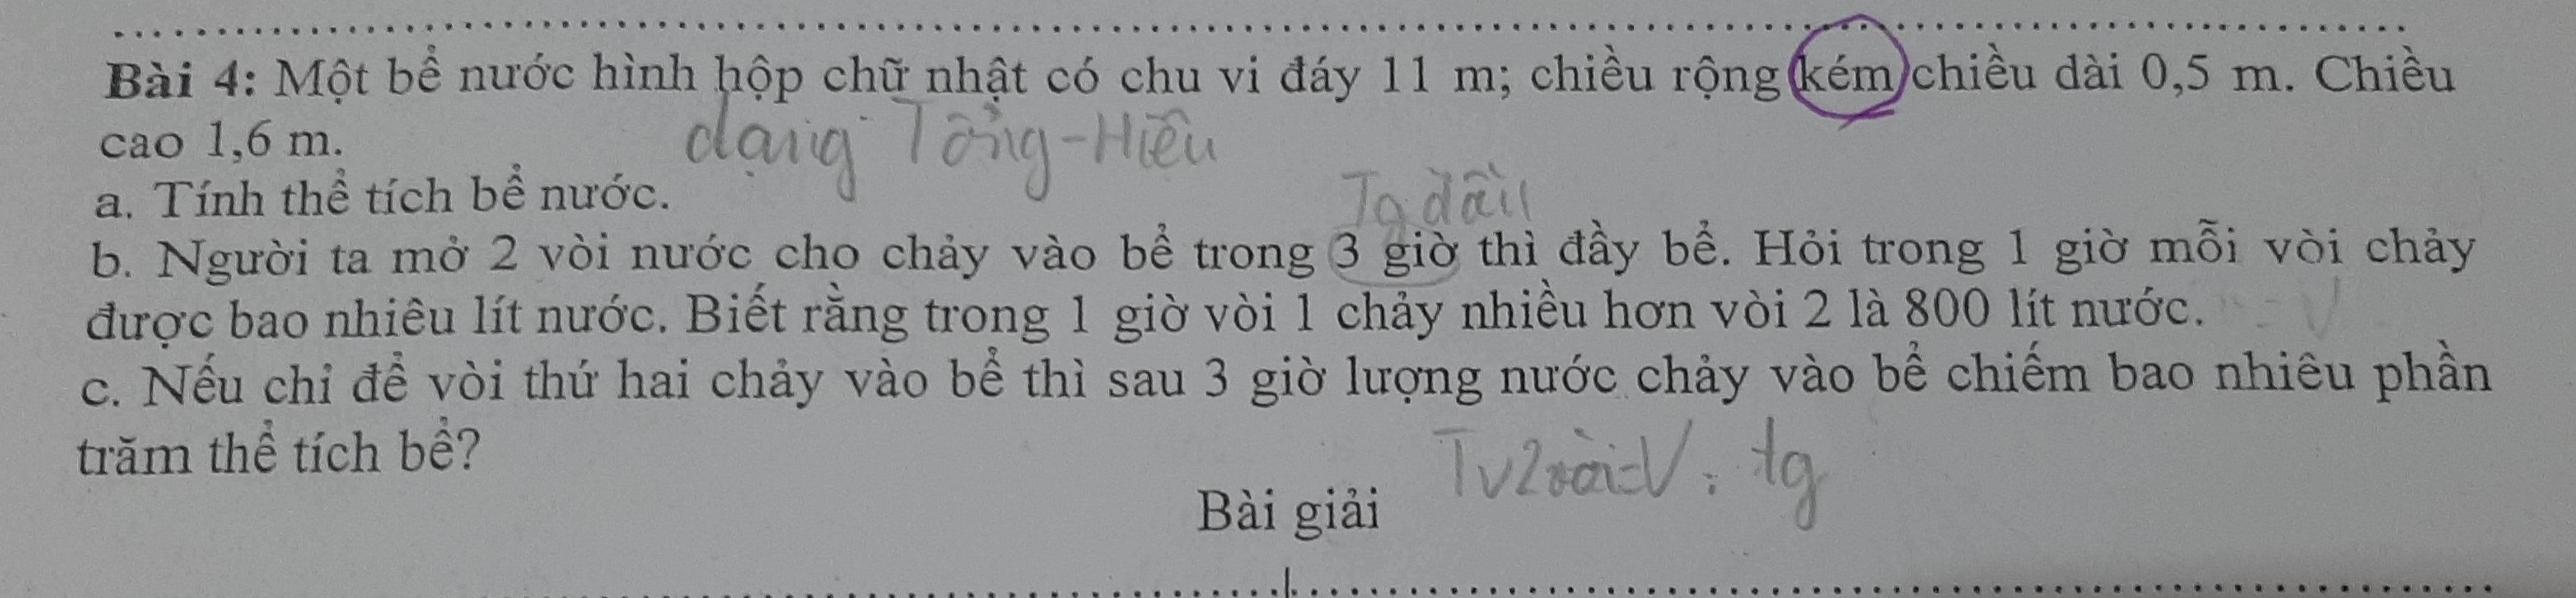 Bài 4: Một bể nước hình hộp chữ nhật có chu vi đáy 11 m; chiều rộng kém chiều dài 0,5 m. Chiều
cao 1,6 m.
dạng Tổng-Hiệu
a. Tính thể tích bể nước.
Tg đầy
b. Người ta mở 2 vòi nước cho chảy vào bể trong 3 giờ thì đầy bể. Hỏi trong 1 giờ mỗi vòi chảy
được bao nhiêu lít nước. Biết rằng trong 1 giờ vòi 1 chảy nhiều hơn vòi 2 là 800 lít nước.
c. Nếu chỉ để vòi thứ hai chảy vào bể thì sau 3 giờ lượng nước chảy vào bể chiếm bao nhiêu phần
trăm thể tích bể?
Tv2vòi=V: tg
Bài giải